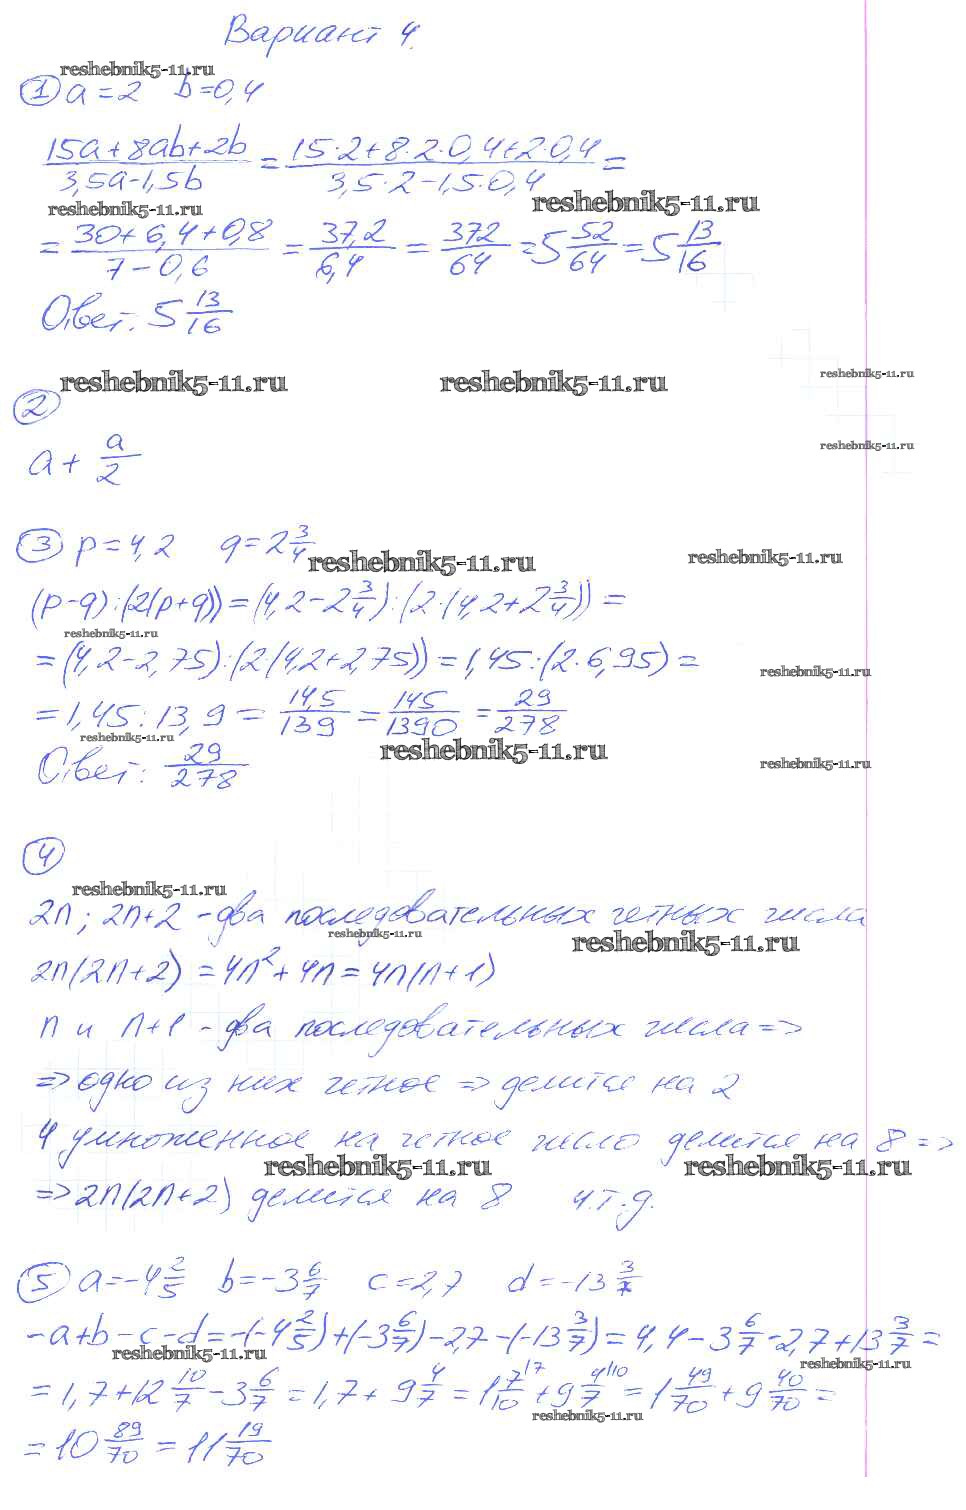 Вариант 4.
reshebnik5-11.ru
① a = 2 b = 0,4
(15a + 8ab + 2b)/(3,5a - 1,5b) = (15·2 + 8·2·0,4 + 2·0,4)/(3,5·2 - 1,5·0,4) =
reshebnik5-11.ru reshebnik5-11.ru
= (30 + 6,4 + 0,8)/(7 - 0,6) = 37,2/6,4 = 372/64 = 5 52/64 = 5 13/16
Ответ: 5 13/16
reshebnik5-11.ru reshebnik5-11.ru reshebnik5-11.ru
②
reshebnik5-11.ru
a + a/2
③ p = 4,2 q = 2 3/4
reshebnik5-11.ru reshebnik5-11.ru
(p - q) : (2(p + q)) = (4,2 - 2 3/4) : (2·(4,2 + 2 3/4)) =
reshebnik5-11.ru
= (4,2 - 2,75) : (2(4,2 + 2,75)) = 1,45 : (2·6,95) =
reshebnik5-11.ru
= 1,45 : 13,9 = 14,5/139 = 145/1390 = 29/278
reshebnik5-11.ru reshebnik5-11.ru
Ответ: 29/278
reshebnik5-11.ru
④
reshebnik5-11.ru
2n; 2n+2 - два последовательных четных числа
reshebnik5-11.ru reshebnik5-11.ru
2n(2n+2) = 4n² + 4n = 4n(n+1)
n и n+1 - два последовательных числа =>
=> одно из них четное => делится на 2
4 умноженное на четное число делится на 8 =>
reshebnik5-11.ru reshebnik5-11.ru
=> 2n(2n+2) делится на 8 ч.т.д.
⑤ a = -4 2/5 b = -3 6/7 c = 2,7 d = -13 3/7
-a + b - c - d = -(-4 2/5) + (-3 6/7) - 2,7 - (-13 3/7) = 4,4 - 3 6/7 - 2,7 + 13 3/7 =
reshebnik5-11.ru reshebnik5-11.ru
= 1,7 + 12 10/7 - 3 6/7 = 1,7 + 9 4/7 = 1 7/10 \7 + 9 4/7 \10 = 1 49/70 + 9 40/70 =
reshebnik5-11.ru
= 10 89/70 = 11 19/70